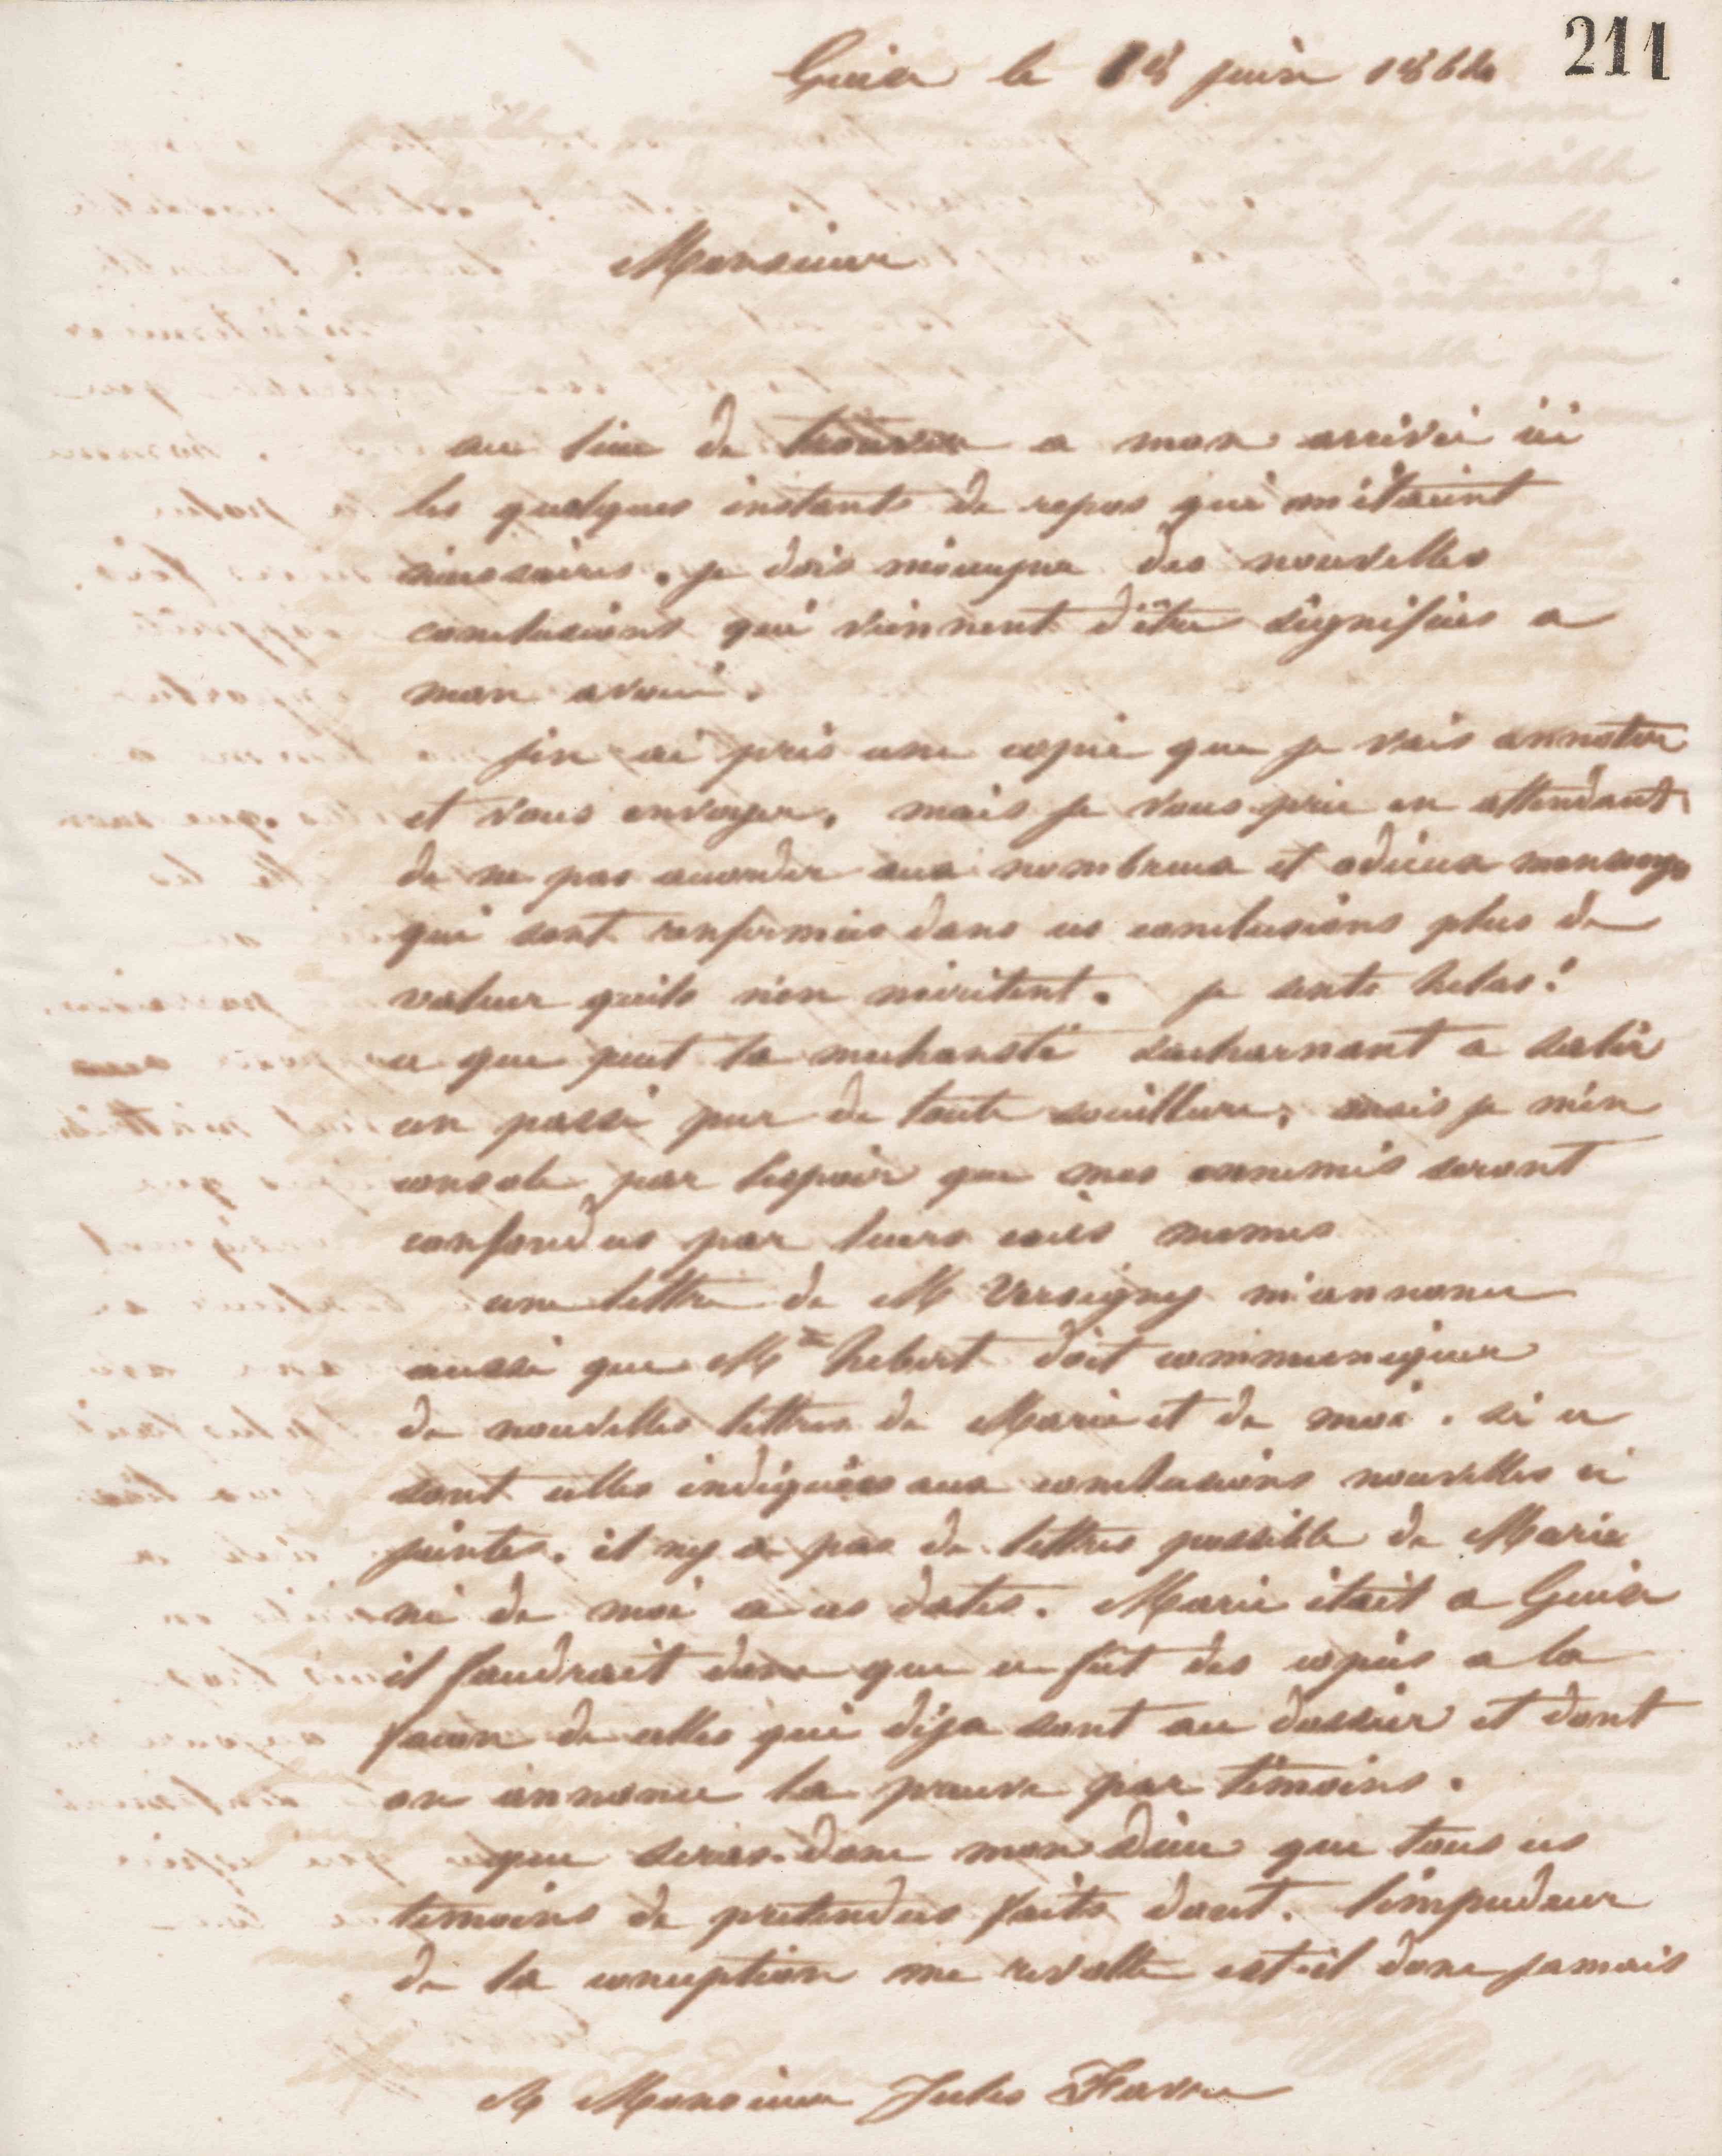 211
Guise le 18 juin 1864
Monsieur
au lieu de trouver a mon arrivée ici
les quelques instants de repos qui m'étaient
nécessaires. je dois m'occuper des nouvelles
conclusions qui viennent d'être signifiées a
mon avoué.
j'en ai pris une copie que je vais annoter
et vous envoyer. mais je vous prie en attendant
de ne pas accorder aux nombreux et odieux mensonges
qui sont renfermés dans ces conclusions plus de
valeur quils n'en méritent. je sents helas!
ce que peut la mechanseté sacharnant a salir
un passé pur de toute souillure, mais je m'en
console par lespoir que mes ennemis seront
confondus par leurs excès memes
une lettre de M Versigny m'annonce
aussi que Me hebert doit communiquer
de nouvelles lettres de Marie et de moi. si ce
sont celles indiquées aux conclusions nouvelles ci
jointes. il ny a pas de lettres possible de Marie
ni de moi a ces dates. Marie était a Guise
il faudrait donc que ce fût des copies a la
facon de celles qui déja sont au dossier et dont
on annonce la preuve par témoins.
que serais donc mon dieu que tous ces
temoins de pretendus faits dont. limpudeur
de la conception me revolte est-il donc jamais
A Monsieur Jules Favre